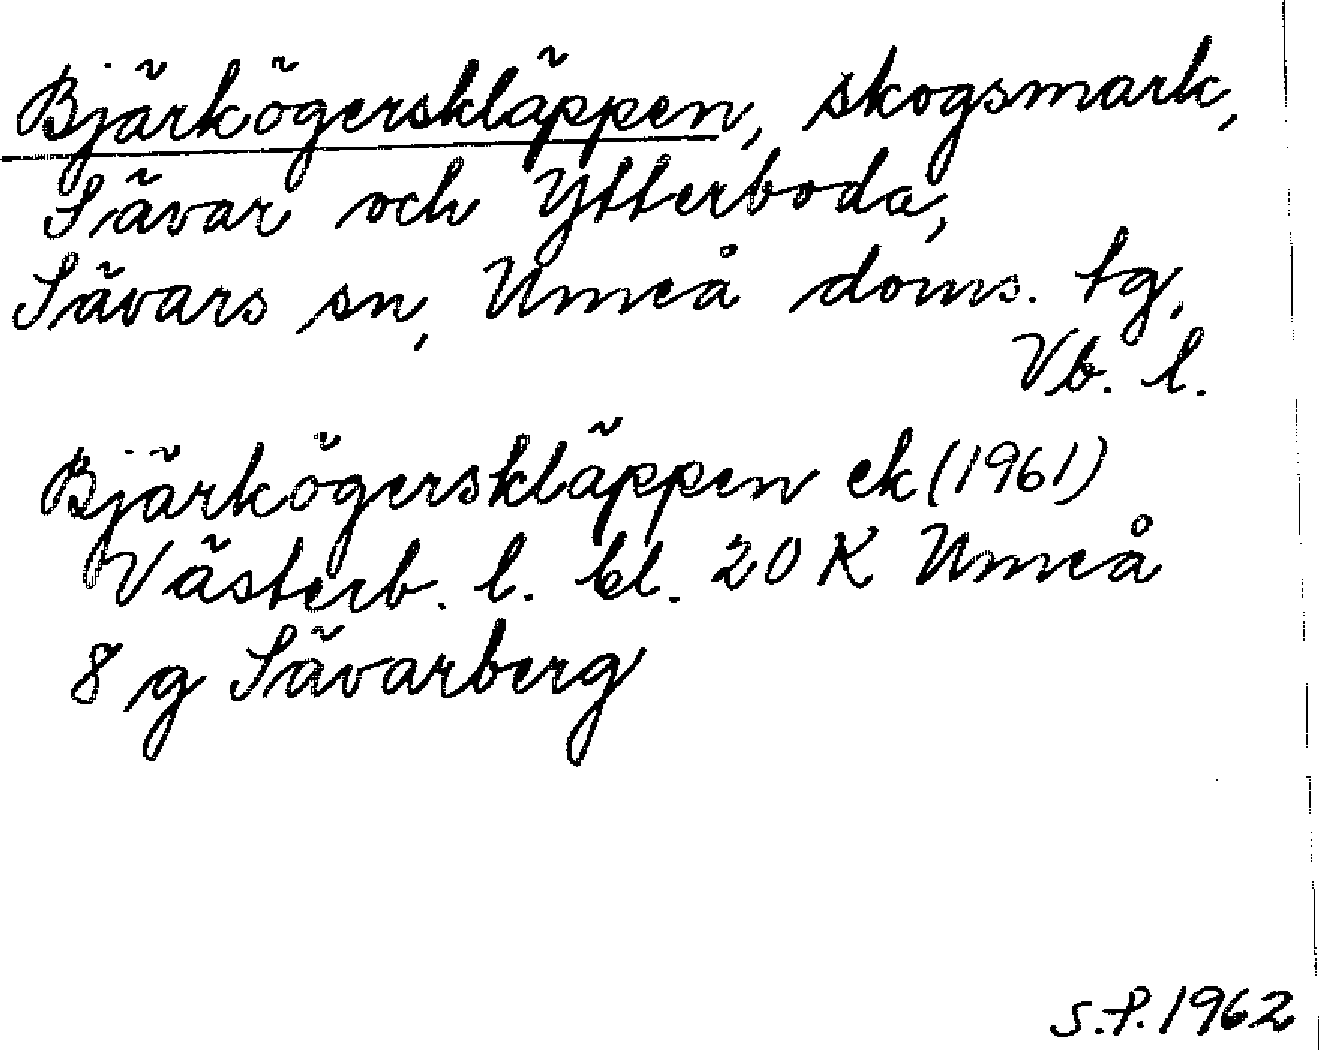 Bjärkögerskläppen, skogsmark,
Sävar och Ytterboda,
Sävars sn, Umeå doms. tg,
Vb. l.
Bjärkögerskläppen ek (1961)
Västerb. l. bl. 20 K Umeå
8 g Sävarberg
S.P. 1962